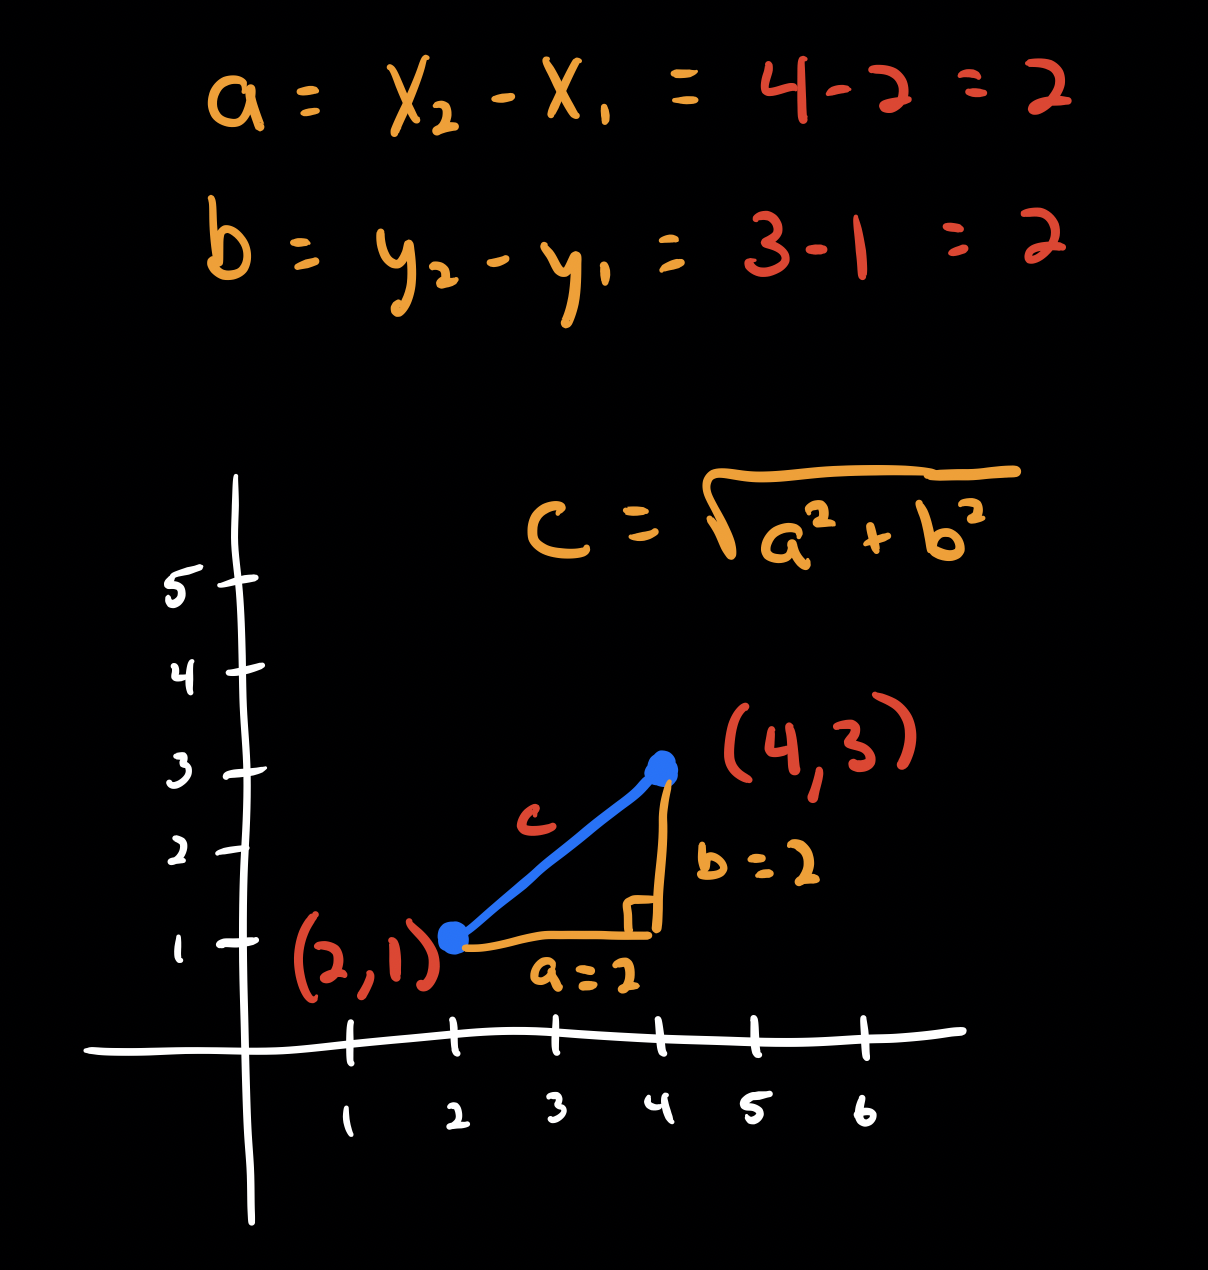 a = x₂ - x₁ = 4 - 2 = 2
b = y₂ - y₁ = 3 - 1 = 2
c = √(a² + b²)
5
4
(4,3)
3
c
2
b = 2
1
(2,1)
a = 2
1 2 3 4 5 6